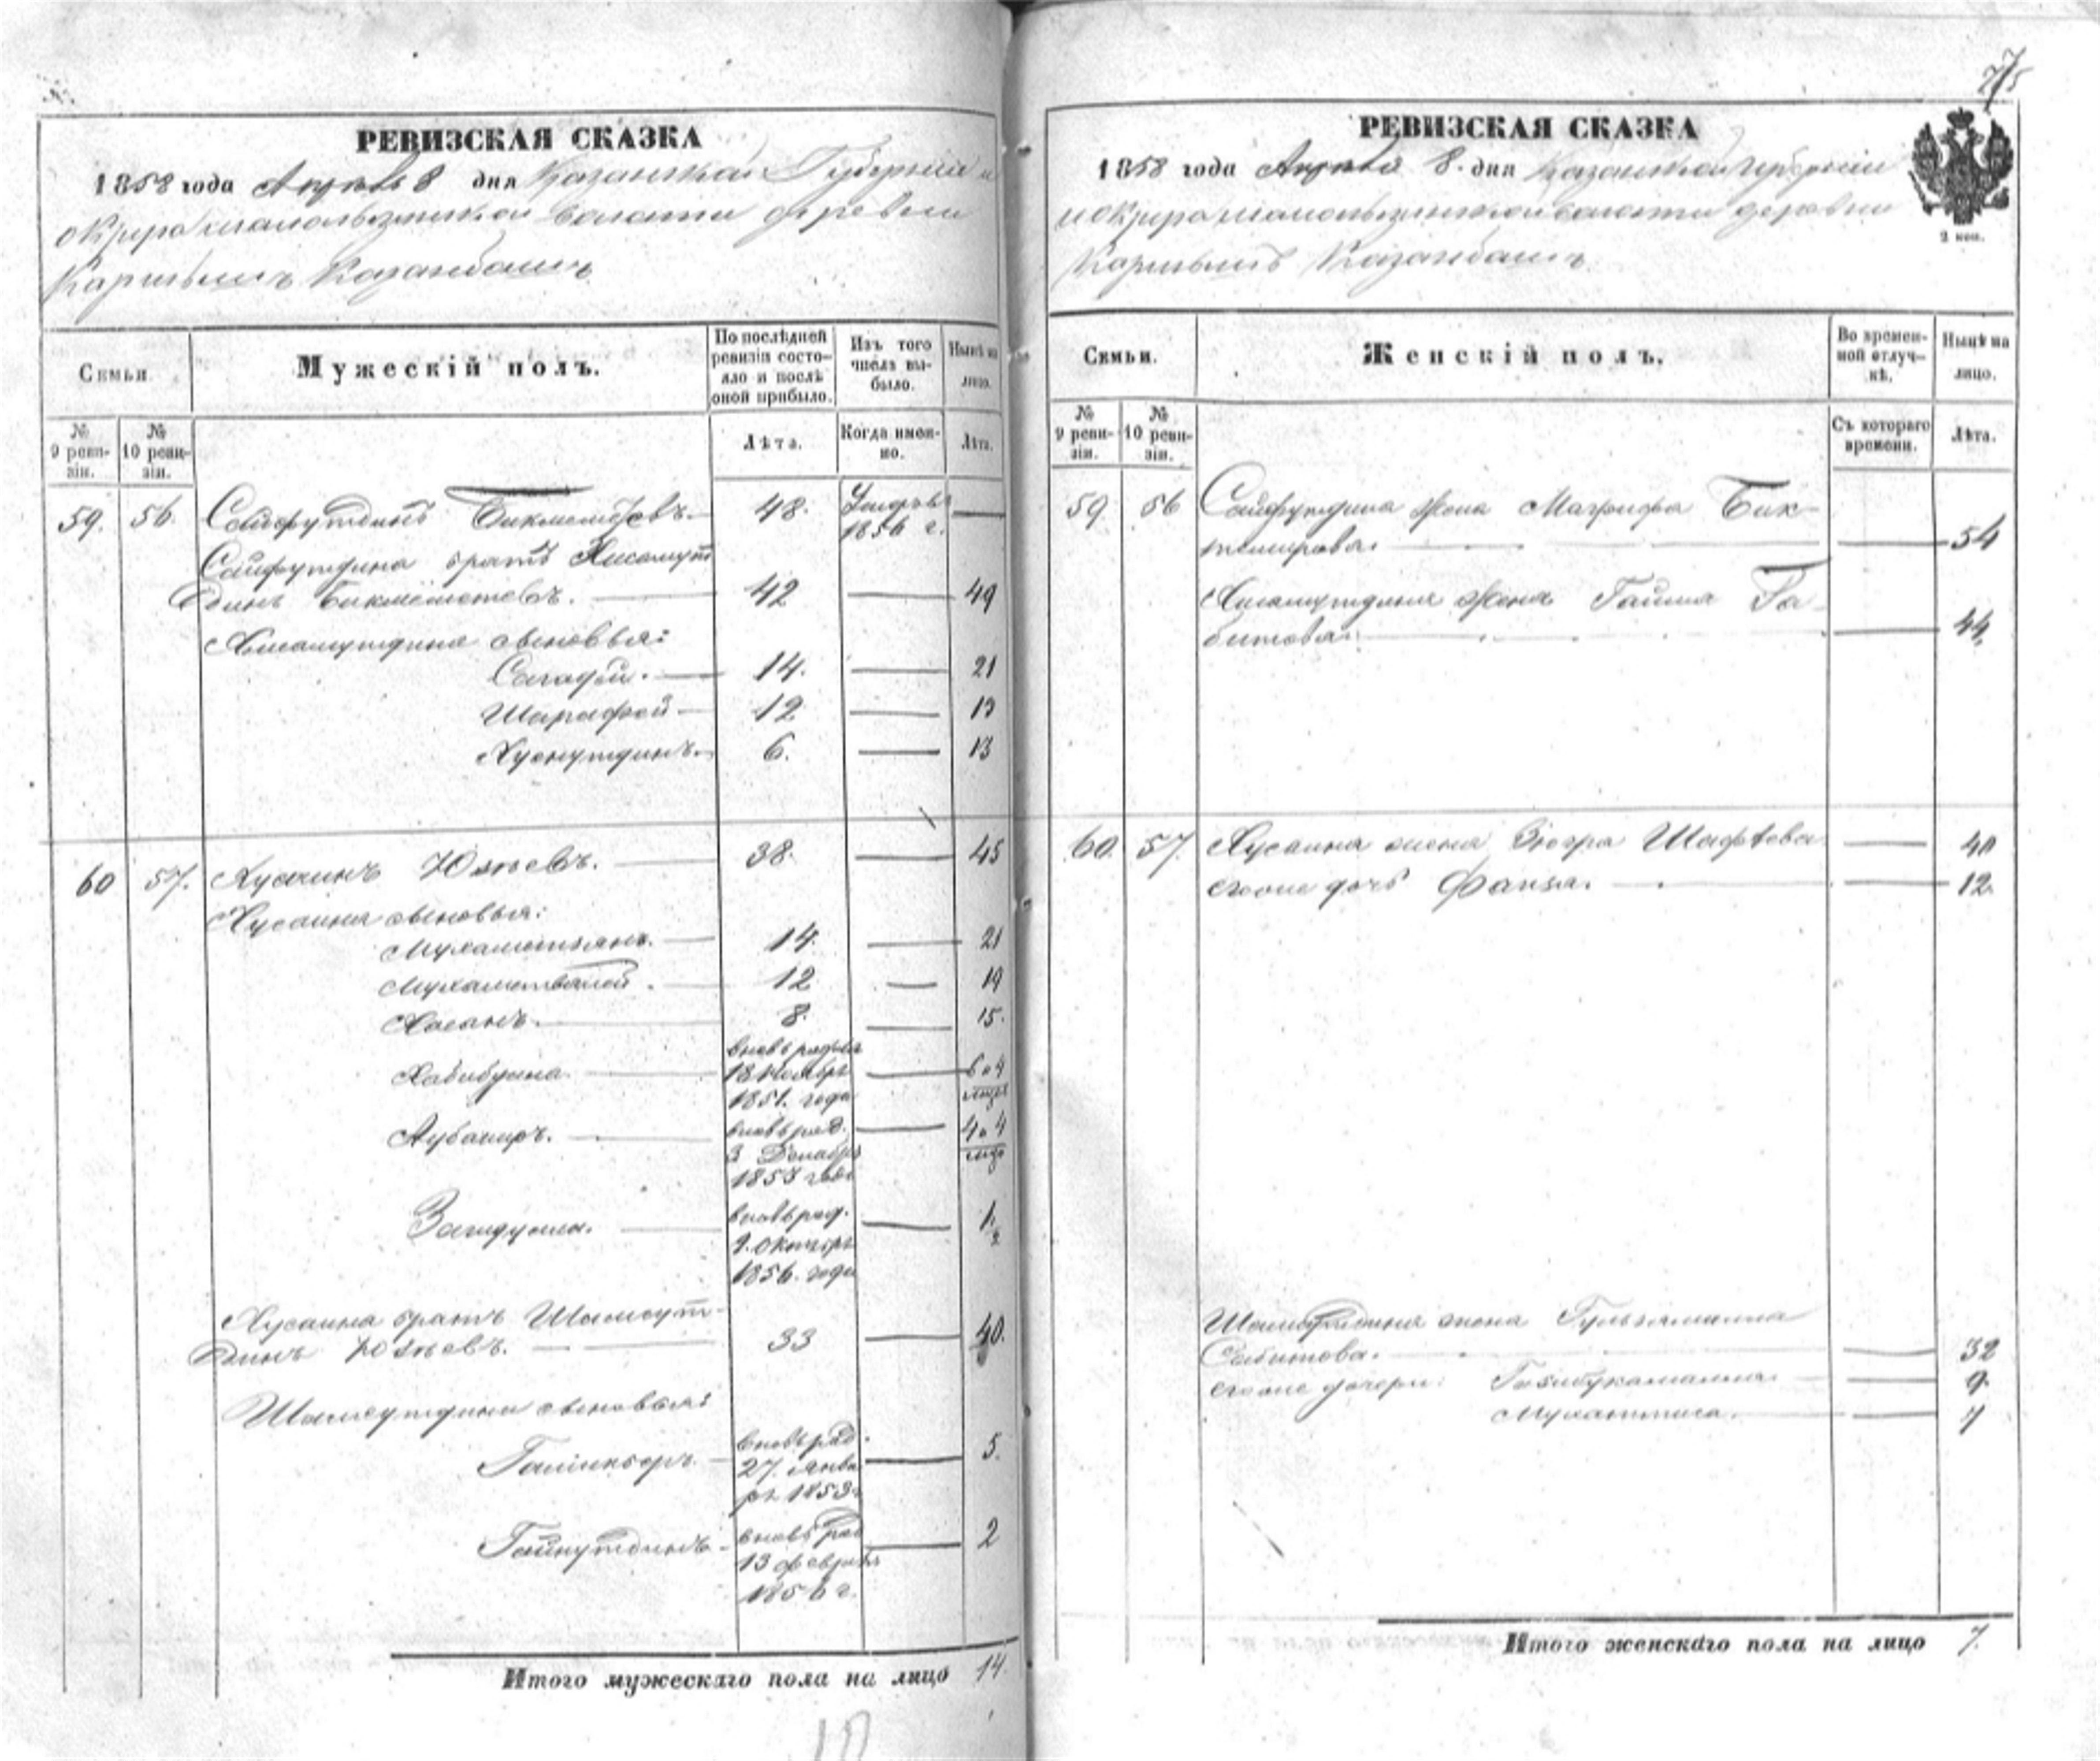 РЕВИЗСКАЯ СКАЗКА
1858 года Апреля 8 дня Казанской Губернии и
округа волости деревни
Казанбашъ
Семьи.
Мужескій полъ.
По послѣдней ревизіи состояло и послѣ оной прибыло.
Изъ того числа выбыло.
Нынѣ на лицо.
№ 9 ревизіи.
№ 10 ревизіи.
Лѣта.
Когда именно.
Лѣта.
59. 56. Сайфутдинъ Бикмеметевъ. 48. Умеръ въ 1856 г. —
Сайфутдина братъ Хисамут
динъ Бикмеметевъ. 42 — 49
Хисамутдина сыновья:
Сагадѣй. 14. — 21
Шарафей 12 — 19
Хуснутдинъ. 6. — 13
60 57. Хусаинъ 38. — 45
Хусаина сыновья:
Мухаметзянъ. 14. — 21
Мухаметвалей. 12 — 19
Хасанъ. 8. — 15.
Хабибулла. вновь рожд. 18 Ноября 1851. года — 6 и 4 мѣсяца
вновь рожд. 3 Декабря года — 4 и 4 мѣс.
Загидулла. вновь рожд. 9. Октября 1856. года — 1½
Хусаина братъ Шамсут-
динъ 33 — 40.
Шамсутдина сыновья:
вновь рожд. 27. января 1853 г. — 5.
Гайнутдинъ вновь рож. 13 февраля 1856 г. — 2
Итого мужескаго пола на лицо 14
РЕВИЗСКАЯ СКАЗКА
1858 года Апреля 8. дня Казанской губерніи
и округа волости деревни
Казанбашъ
2 коп.
Семьи.
Женскій полъ.
Во временной отлучкѣ.
Нынѣ на лицо.
№ 9 ревизіи.
№ 10 ревизіи.
Съ котораго времени.
Лѣта.
59 56 Сайфутдина жена Магрифа Бик-
темирова. — 54
Хисамутдина жена Гайша Га-
битова. — 44.
60. 57. Хусаина жена Зюгра — 40
дочь Фаиза. — 12.
Шамсутдина жена Гульжамалла
Сабитова. — 32
дочери: — 9.
— 7
Итого женскаго пола на лицо 7.